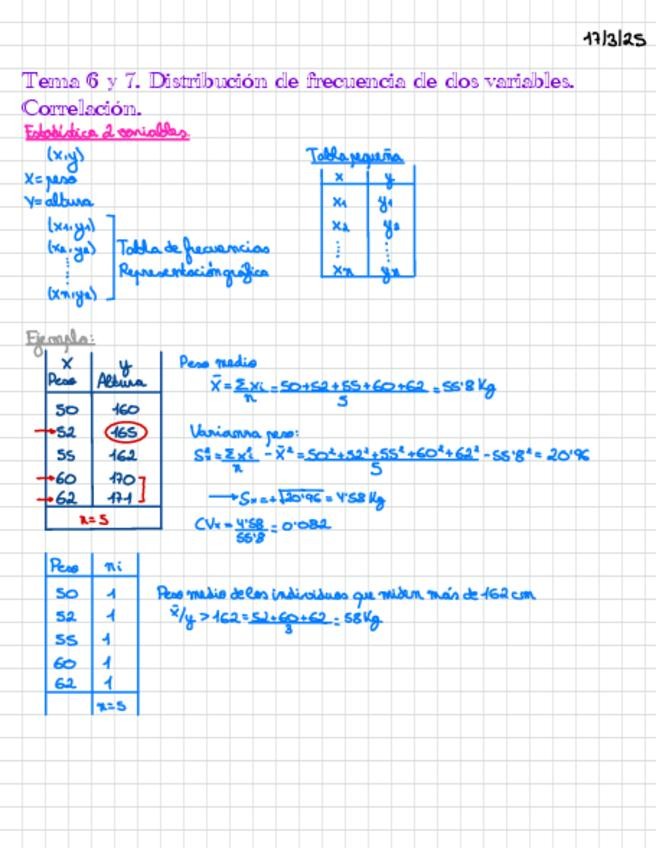 17/3/25
Tema 6 y 7. Distribución de frecuencia de dos variables.
Correlación.
Estadística 2 variables
(x,y)
X=peso
Y=altura
(x1,y1)
(x2,y2)
(xn,yn)
Tabla de frecuencias
Representación gráfica
Tabla pequeña
x y
x1 y1
x2 y2
xn yn
Ejemplo:
x y
Peso Altura
50 160
→52 165
55 162
→60 170
→62 171
n=5
Peso medio
x̄ = Σxi/n = 50+52+55+60+62/5 = 55'8 Kg
Varianza peso:
Sx² = Σxi²/n - x̄² = 50²+52²+55²+60²+62²/5 - 55'8² = 20'96
→ Sx=+√20'96 = 4'58 Kg
CVx = 4'58/55'8 = 0'082
Peso ni
50 1
52 1
55 1
60 1
62 1
n=5
Peso medio de los individuos que miden más de 162 cm
x̄/y > 162 = 52+60+62/3 = 58 Kg